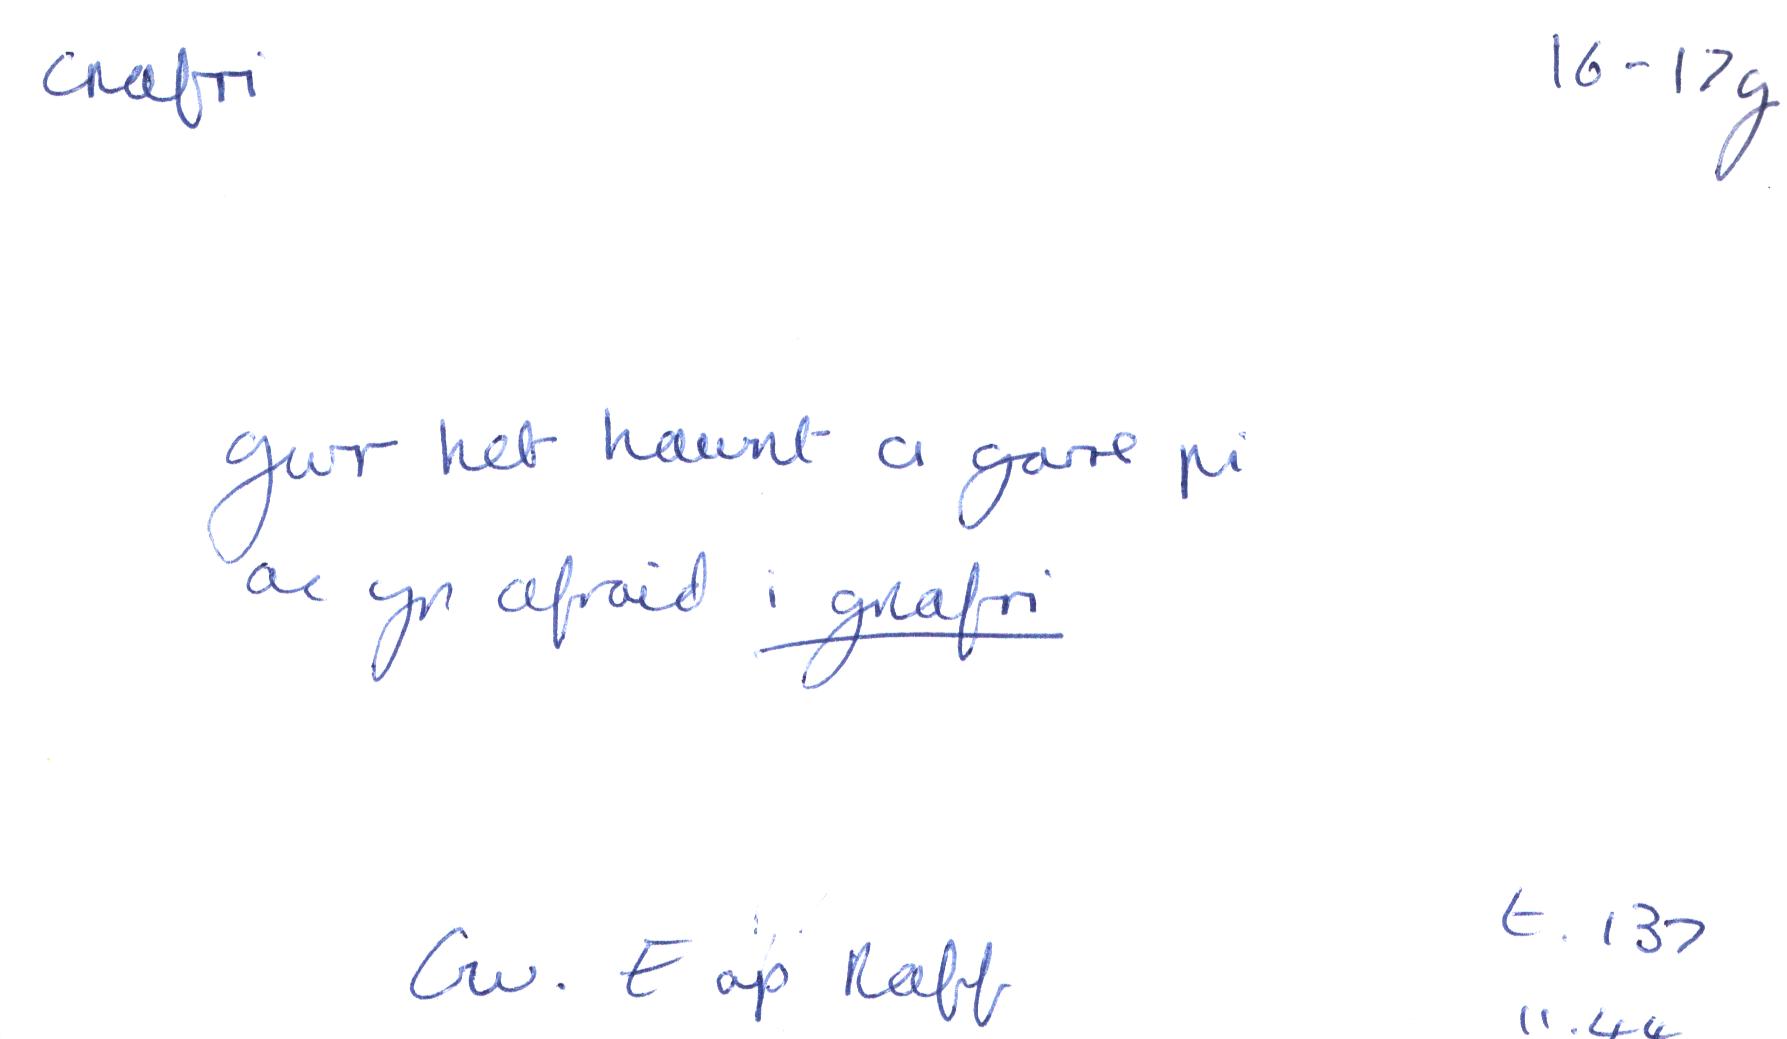 cnafri 16-17g
gwr het haunt a garre pi
ac yn afraid i gnafri
Gw. E ap Raff t. 137
11.44